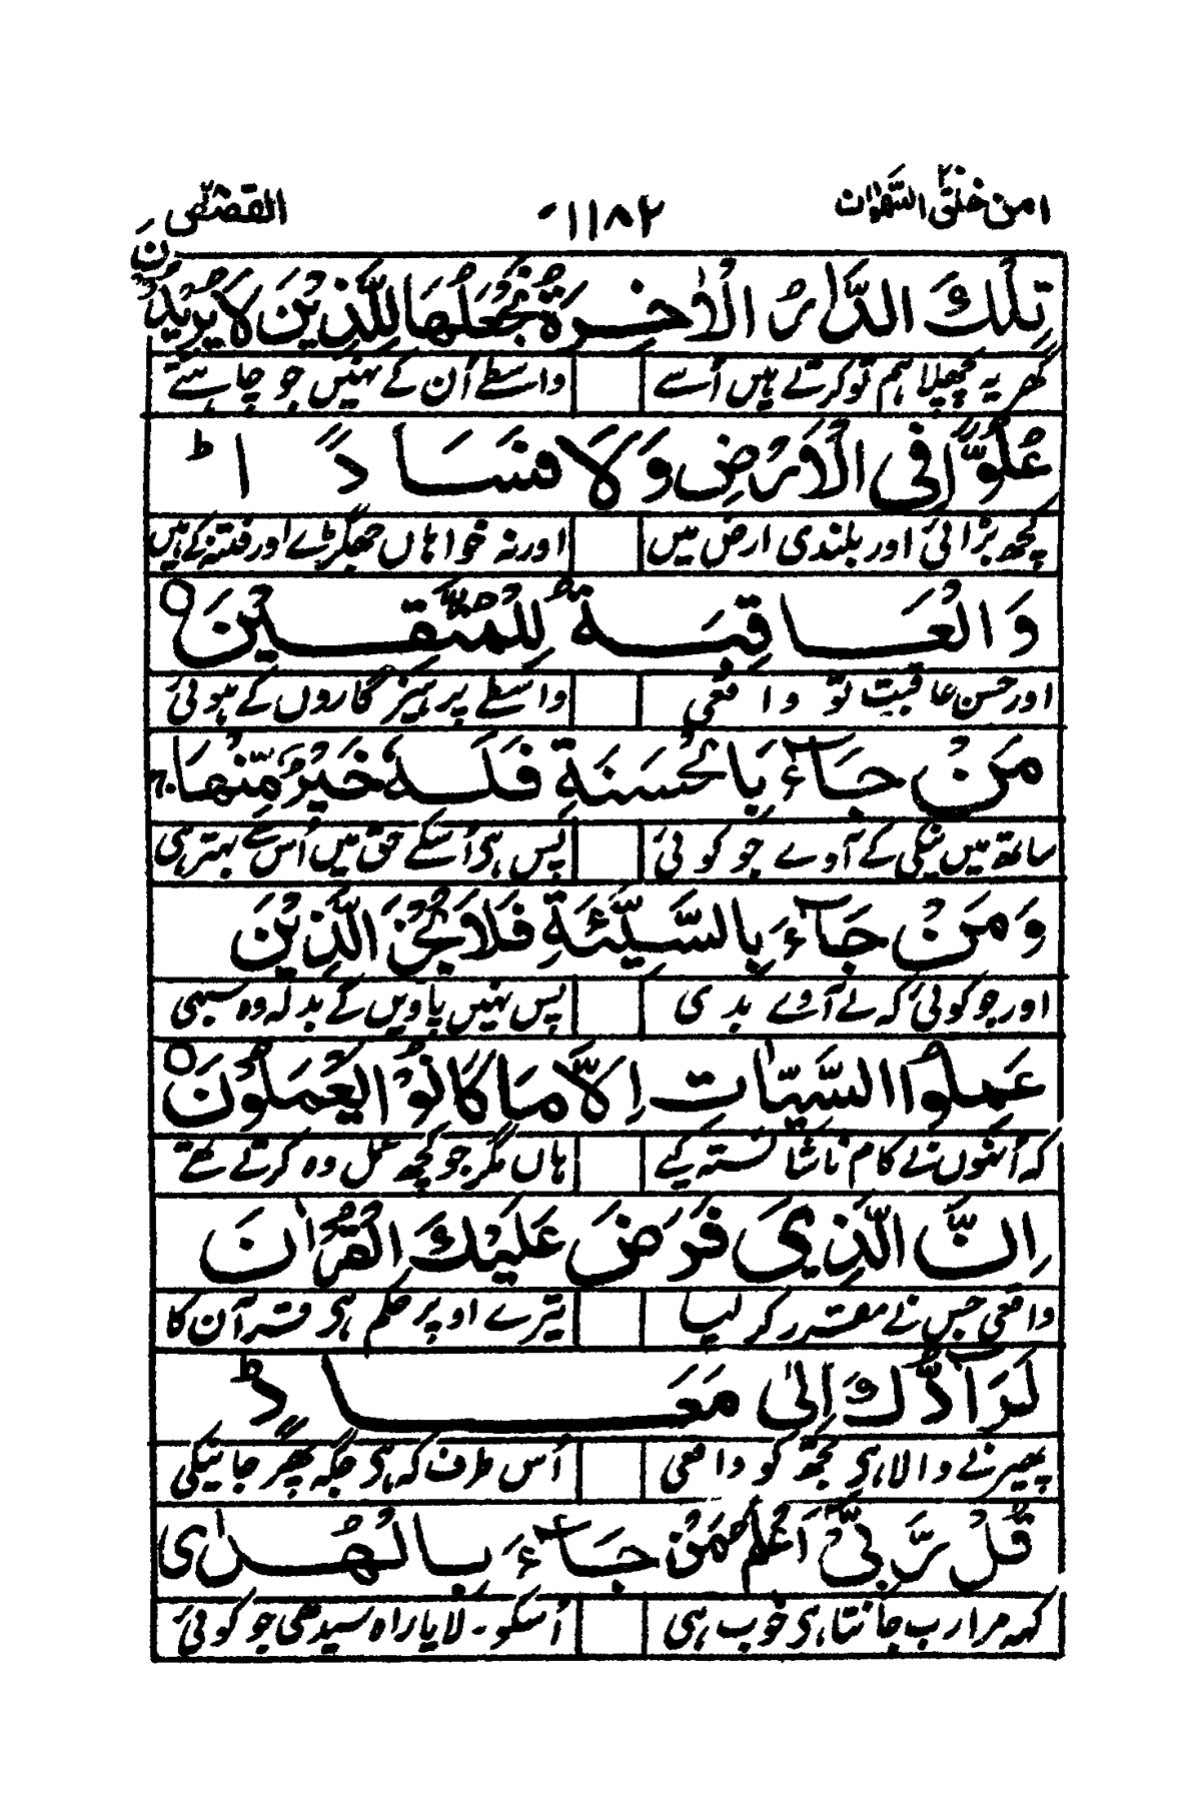 امن خلق السمٰوات ٢٠ ١١٨٢ القصص ٢٨
تِلْكَ الدَّارُ الْاٰخِرَةُ نَجْعَلُهَا لِلَّذِيْنَ لَا يُرِيْدُوْنَ
گھر یہ پچھلا ہم تو کرتے ہیں اُسے واسطے اُن کے نہیں جو چاہتے
عُلُوًّا فِي الْاَرْضِ وَلَا فَسَادًا ؕ
کچھ بڑائی اور بلندی ارض میں اور نہ خواہاں جھگڑے اور فتنہ کے ہیں
وَالْعَاقِبَةُ لِلْمُتَّقِيْنَ ○
اور حسن عاقبت تو واقعی واسطے پرہیزگاروں کے ہوئی
مَنْ جَآءَ بِالْحَسَنَةِ فَلَهٗ خَيْرٌ مِّنْهَا ۚ
ساتھ میں نیکی کے آوے جو کوئی پس ہی اُسکے حق میں اُس سے بہتر ہی
وَمَنْ جَآءَ بِالسَّيِّئَةِ فَلَا يُجْزَى الَّذِيْنَ
اور جو کوئی کہ لے آوے بدی پس نہیں پاویں گے بدلہ وہ سبھی
عَمِلُوا السَّيِّاٰتِ اِلَّا مَا كَانُوْا يَعْمَلُوْنَ ○
کہ اُنہوں نے کام ناشائستہ کیے ہاں مگر جو کچھ عمل وہ کرتے تھے
اِنَّ الَّذِيْ فَرَضَ عَلَيْكَ الْقُرْاٰنَ
واقعی جس نے مقرر کر لیا تیرے اوپر حکم ہی قرآن کا
لَرَآدُّكَ اِلٰى مَعَادٍ ؕ
پھیرنے والا ہی تجھ کو واقعی اُس طرف کہ ہی جگہ پھر جانیکی
قُلْ رَّبِّيْٓ اَعْلَمُ مَنْ جَآءَ بِالْهُدٰى
کہہ مرا رب جانتا ہی خوب ہی اُسکو۔ لایا راہ سیدھی جو کوئی